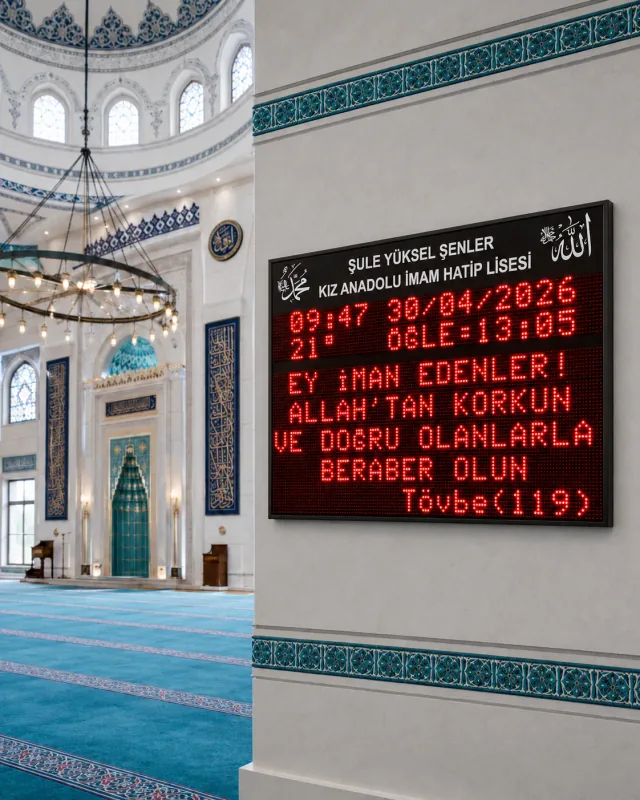 ŞULE YÜKSEL ŞENLER
KIZ ANADOLU İMAM HATİP LİSESİ
محمد
الله
09:47 30/04/2026
21° ÖĞLE=13:05
EY İMAN EDENLER!
ALLAH'TAN KORKUN
VE DOĞRU OLANLARLA
BERABER OLUN
Tövbe(119)